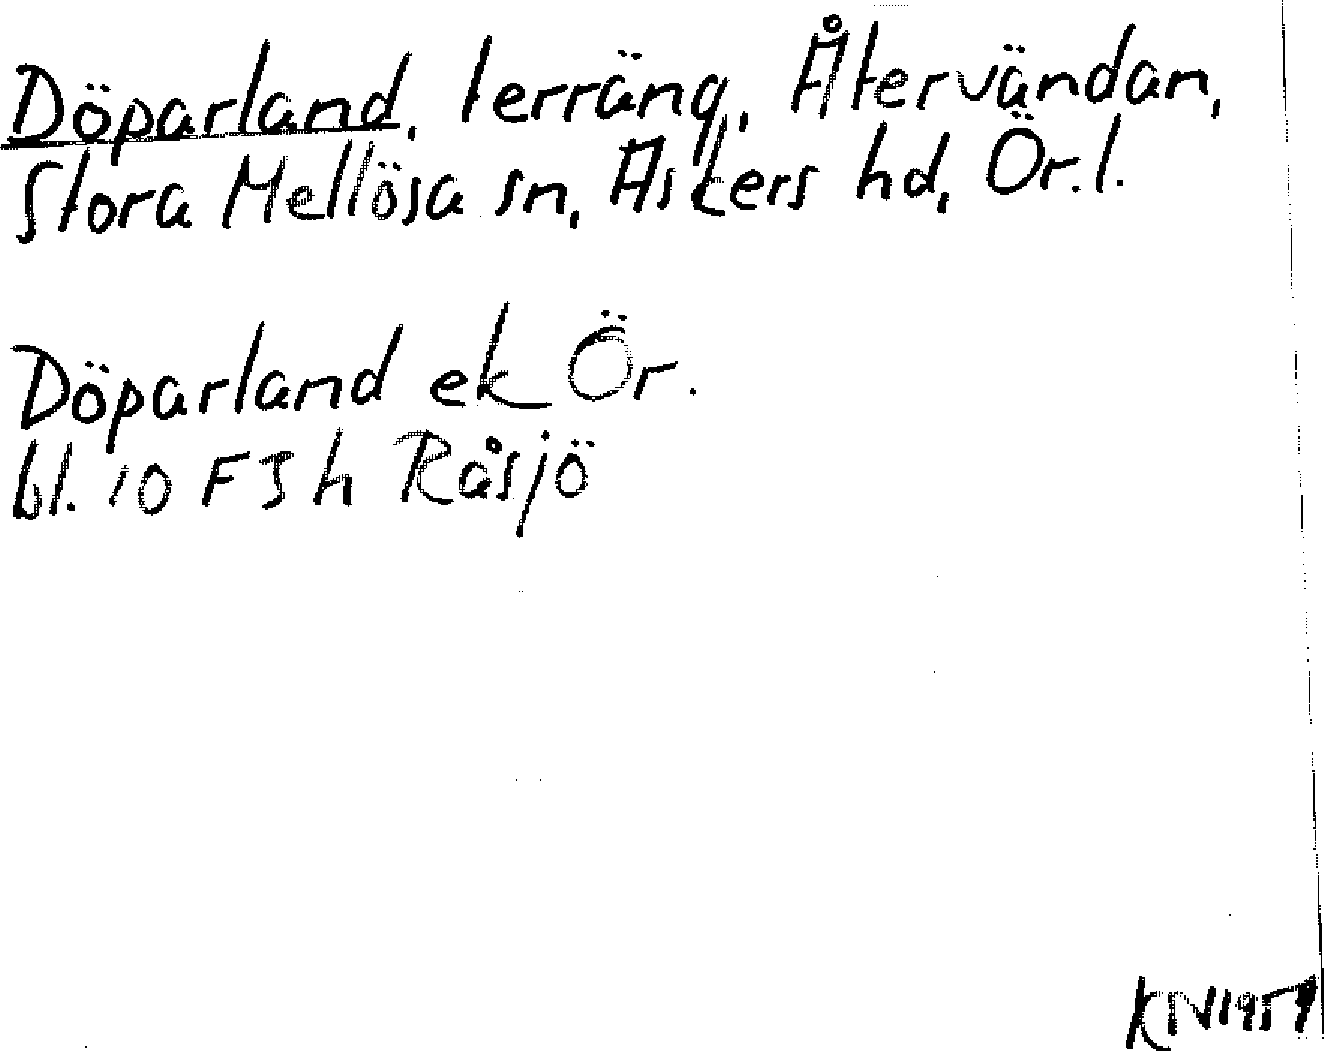 Döparland, terräng, Återvändan,
Stora Mellösa sn, Askers hd, Ör. l.
Döparland ek Ör.
bl. 10 F 3 h Råsjö